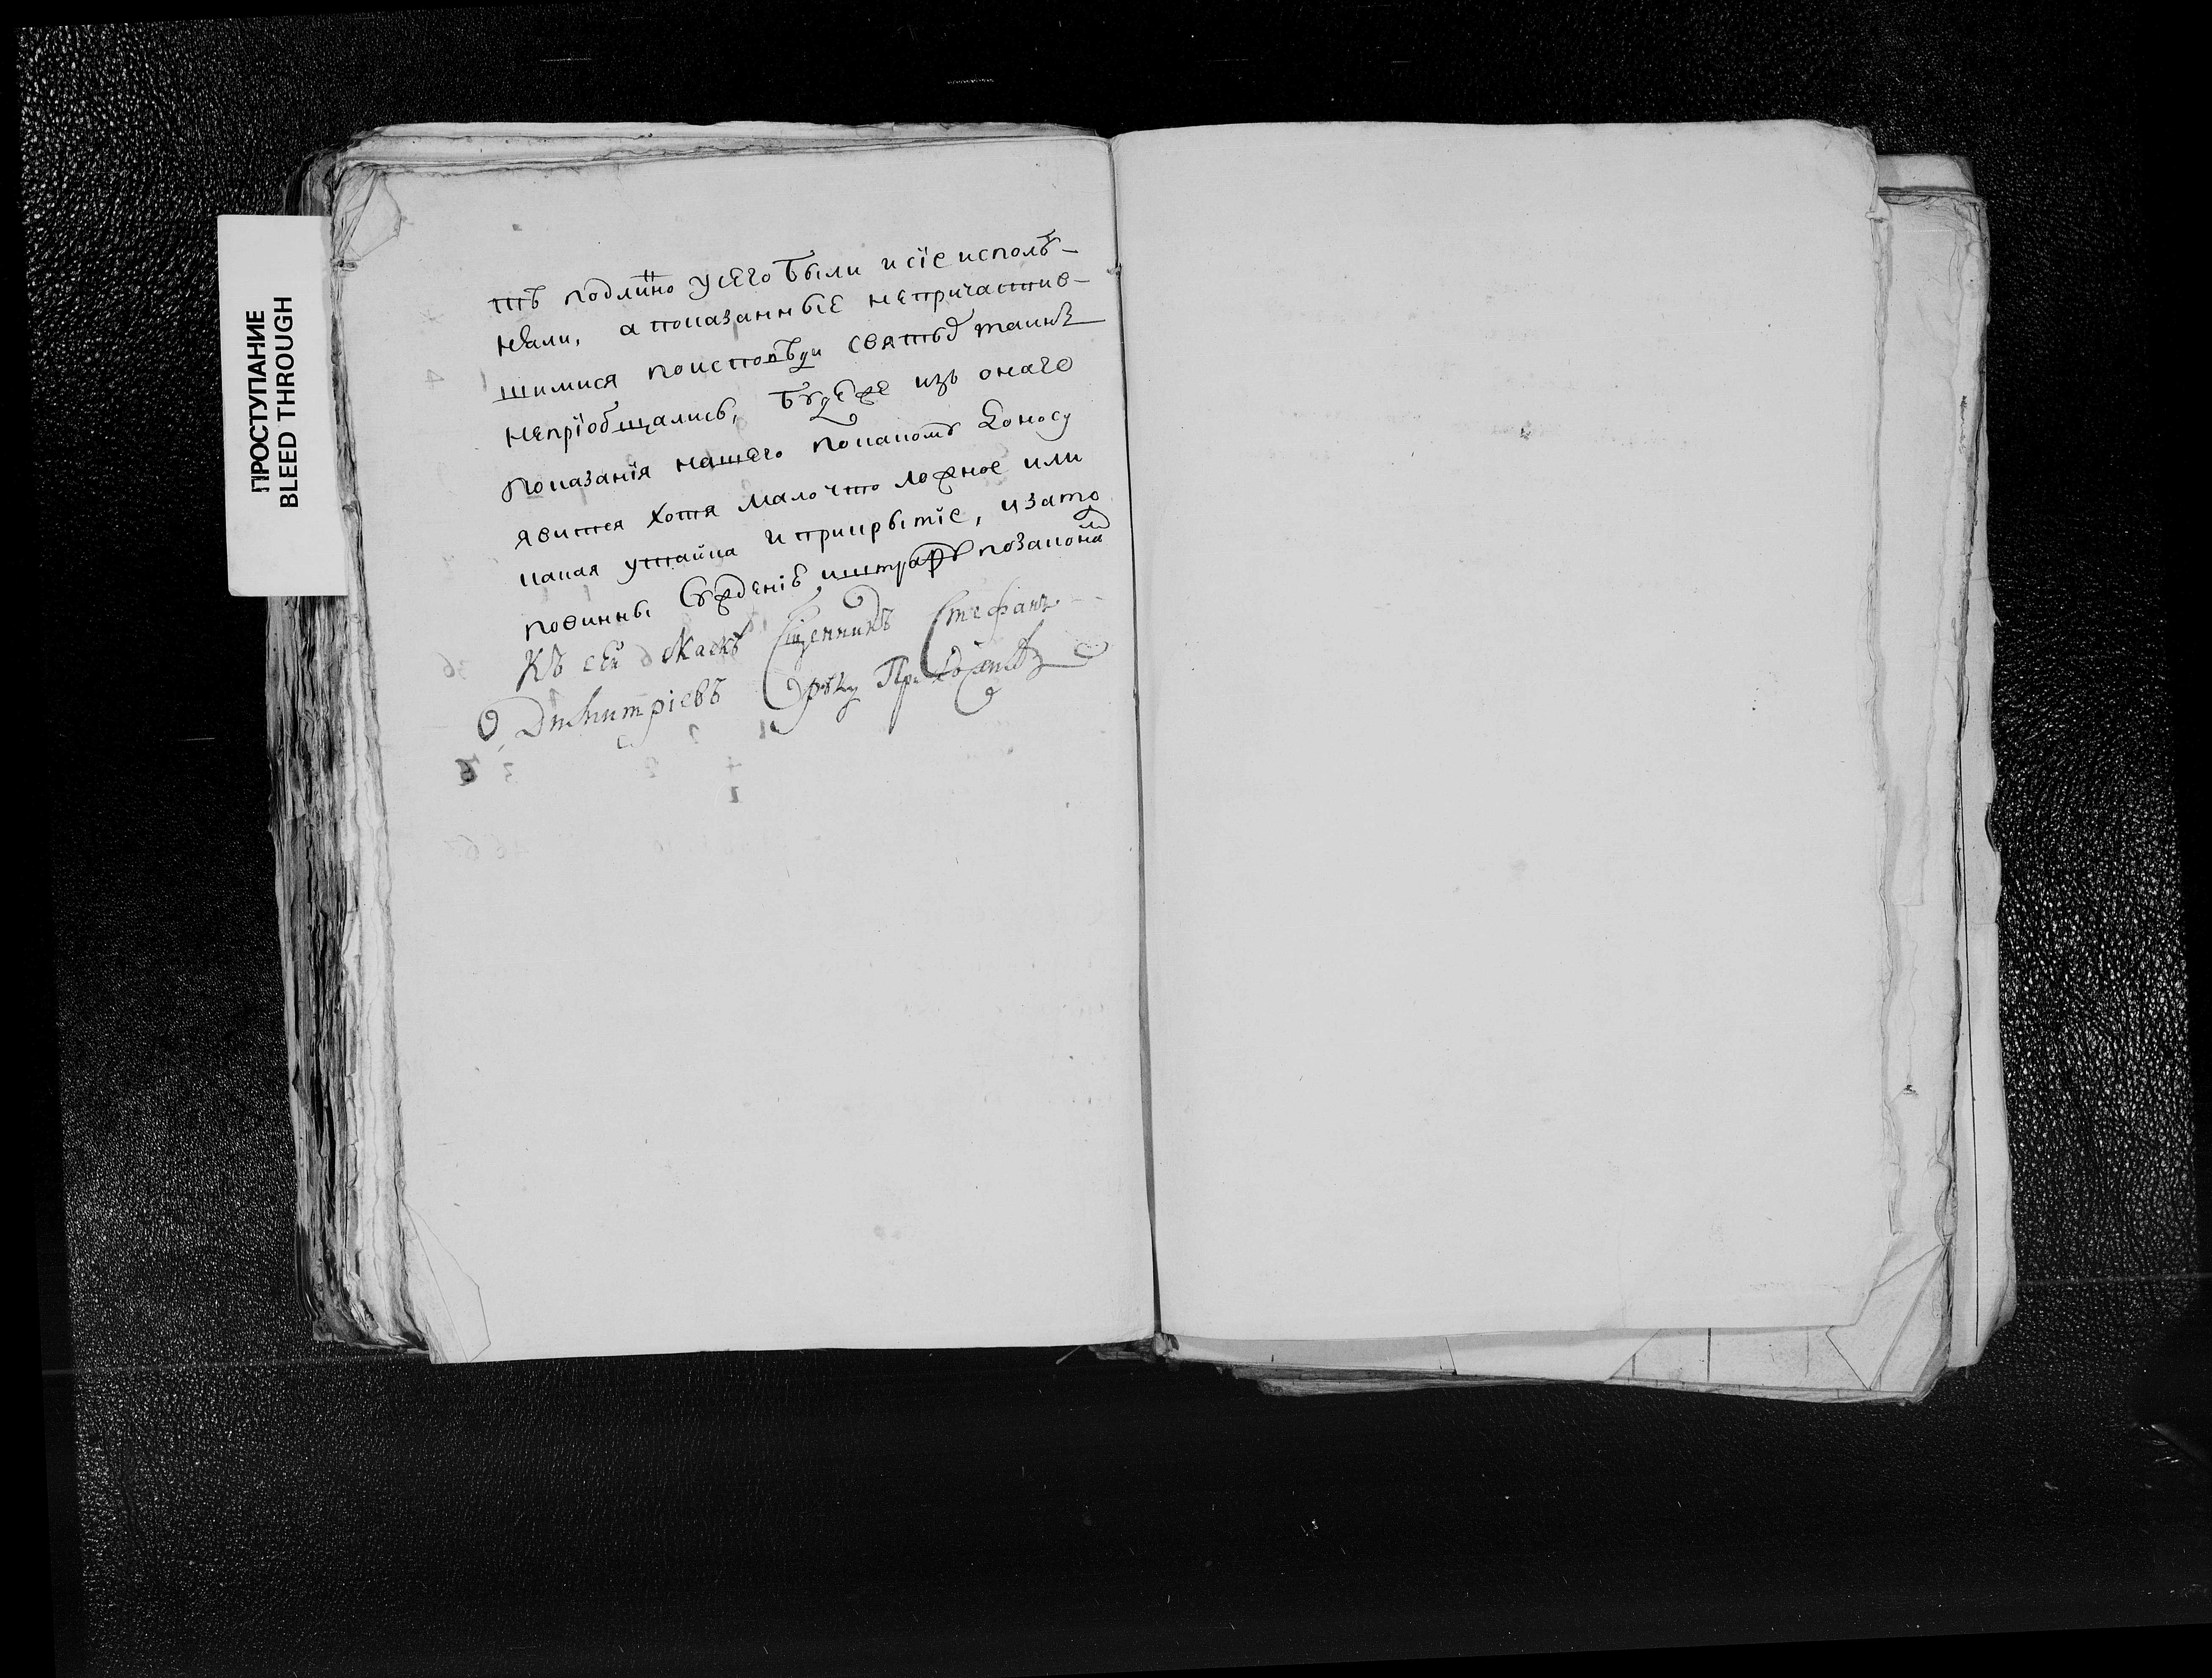 ПРОСТУПАНИЕ
BLEED THROUGH
тѣ подлинно у сего были и сіе исполъ-
няли, а показанные непричастив-
шимися по исповѣди святыхъ таинъ
непріобщались, буде же изъ онаго
показанія нашего по какому доносу
явится хотя мало что ложное или
какая утайка и прикрытіе, и за то
повинны суждению и штрафъ по закона
Къ сей скаскѣ Сщенникъ Стефанъ
Димитріевъ руку Приложилъ